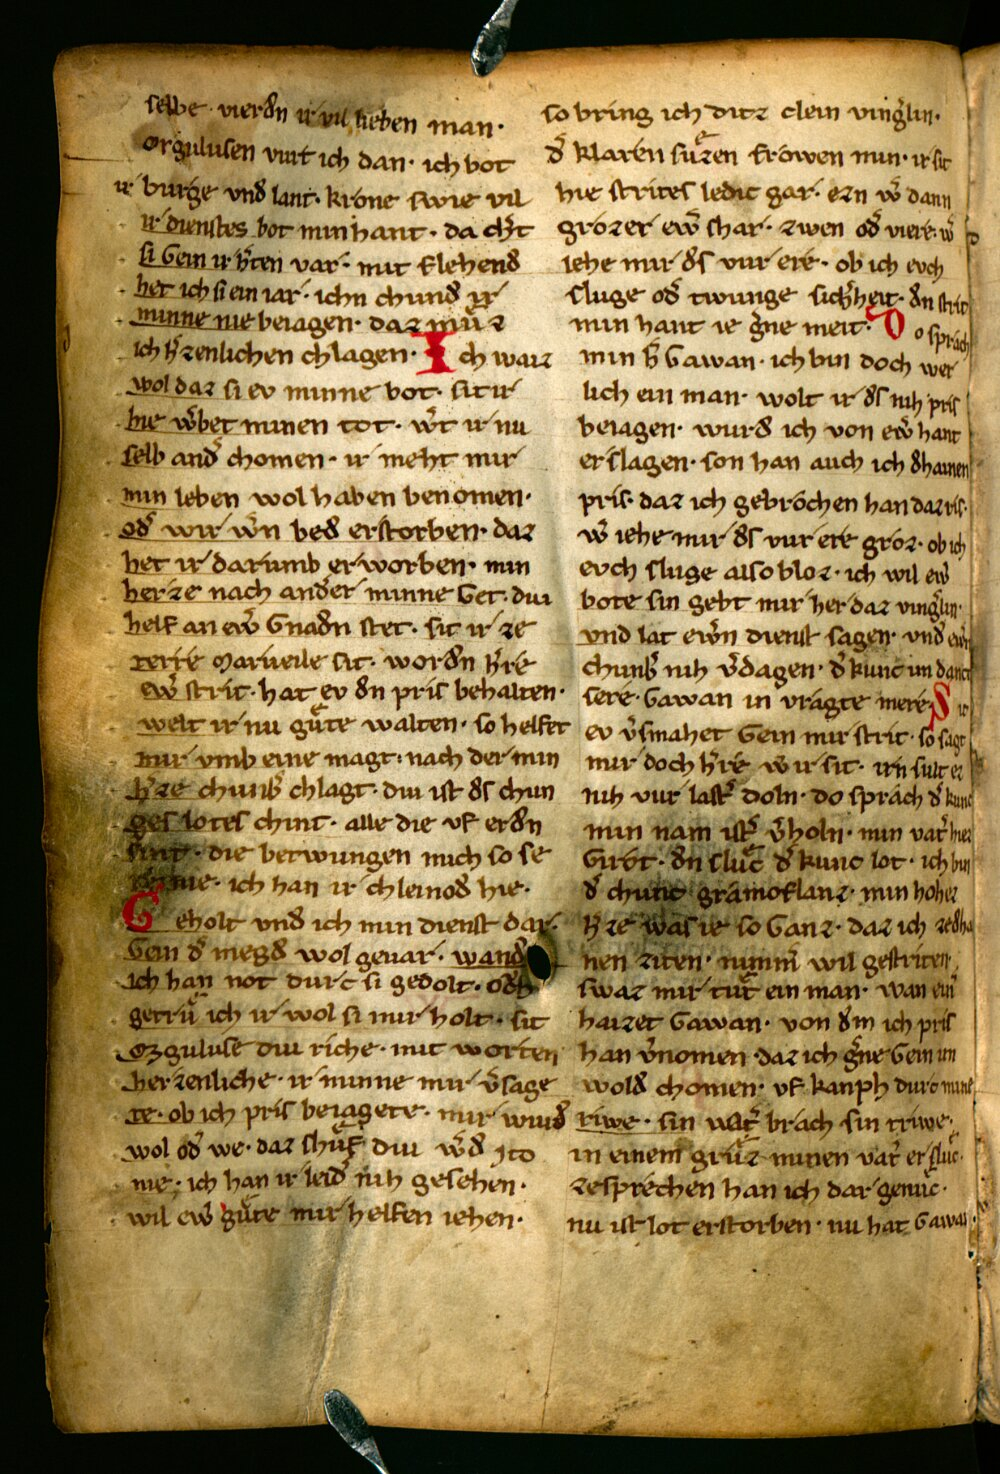 selbe · vierdn ir vil lieben man ·
orgulusen vurt ich dan · ich bot
ir burge vnd lant · krone swie vil
ir dienstes bot min hant · da chert
si Gein ir herten var · mit flehend
het ich si ein iar · ichn chund ir
minne nie beiagen · daz muͦz
ich hͤrzenlichen chlagen · Ich waiz
wol daz si ev minne bot · sit ir
hie wͤbet minen tot · wͤt ir nu
selb andͤ chomen · ir meht mir
min leben wol haben benomen ·
odͤ wir wͤn bed erstorben · daz
het ir darumb erworben · min
herze nach ander minne Get · diu
helf an ewͤ Gnadn stet · sit ir ze
terre Marveile sit · wordn hͤre
ewͤ strit · hat ev dn pris behalten ·
welt ir nu guͤte walten · so helfet
mir vmb eine magt · nach der min
hͤrze chunbͤ chlagt · diu ist ds chun
ges lotes chint · alle die vf erdn
sint · die betwungen mich so se
re nie · ich han ir chleinod hie ·
Geholt vnd ich min dienst dar ·
Gein dͤ megd wol gevar · wand
ich han not durc si gedolt · och
getruͤ ich ir wol si mir holt · sit
Orguluse diu riche · mit worten
herzenliche · ir minne mir vͤsage
te · ob ich pris beiagete · mir wurd
wol odͤ we · daz shuͤf diu wͤd ito
nie · ich han ir leidͤ nih gesehen ·
wil ewͤ guͤte mir helfen iehen ·
so bring ich ditz clein vingͤlin ·
dͤ klaren suͤzen frowen min · ir sit
hie strites ledic gar · ezn wͤ dann
grozer ewͤ shar · zwen odͤ viere · wͤ
iehe mir ds vur ere · ob ich evch
sluge odͤ twunge sichͤheit · dn strit
min hant ie gͤne meit · Do sprach
min hͤ Gawan · ich bin doch wer
lich ein man · wolt ir ds nih pris
beiagen · wurd ich von ewͤ hant
erslagen · son han auch ich dhainen
pris · daz ich gebrochen han daz ris ·
wͤ iehe mir ds vur ere groz · ob ich
evch sluge also bloz · ich wil ewͤ
bote sin gebt mir her daz vingͤlin ·
vnd lat ewͤn dienst sagen · vnd ewͤn
chunbͤ nih vͤdagen · dͤ kunc im danct
sere · Gawan in vragte mere · Sit
ev vͤsmahet Gein mir strit · so sagt
mir doch hͤre wͤ ir sit · irn sult ez
nih vur lastͤ doln · do sprach dͤ kunc
min nam istͤ vͤholn · min vatͤ hiez
Girot · dn sluͤc dͤ kunc lot · ich bin
dͤ chunc gramoflanz · min hohez
hͤrze was ie so Ganz · daz ich ze dhai
nen ziten · nimmͤ wil gestriten
swaz mir tuͤt ein man · wan einͤ
haizet Gawan · von dm ich pris
han vͤnomen · daz ich gͤne Gein im
wold chomen · vf kanph durc mine
riwe · sin vatͤ brach sin triwe ·
in einem gruͤz minen vatͤ er sluͤc ·
zesprechen han ich dar genuͤc ·
nu ist lot erstorben · nu hat Gawan